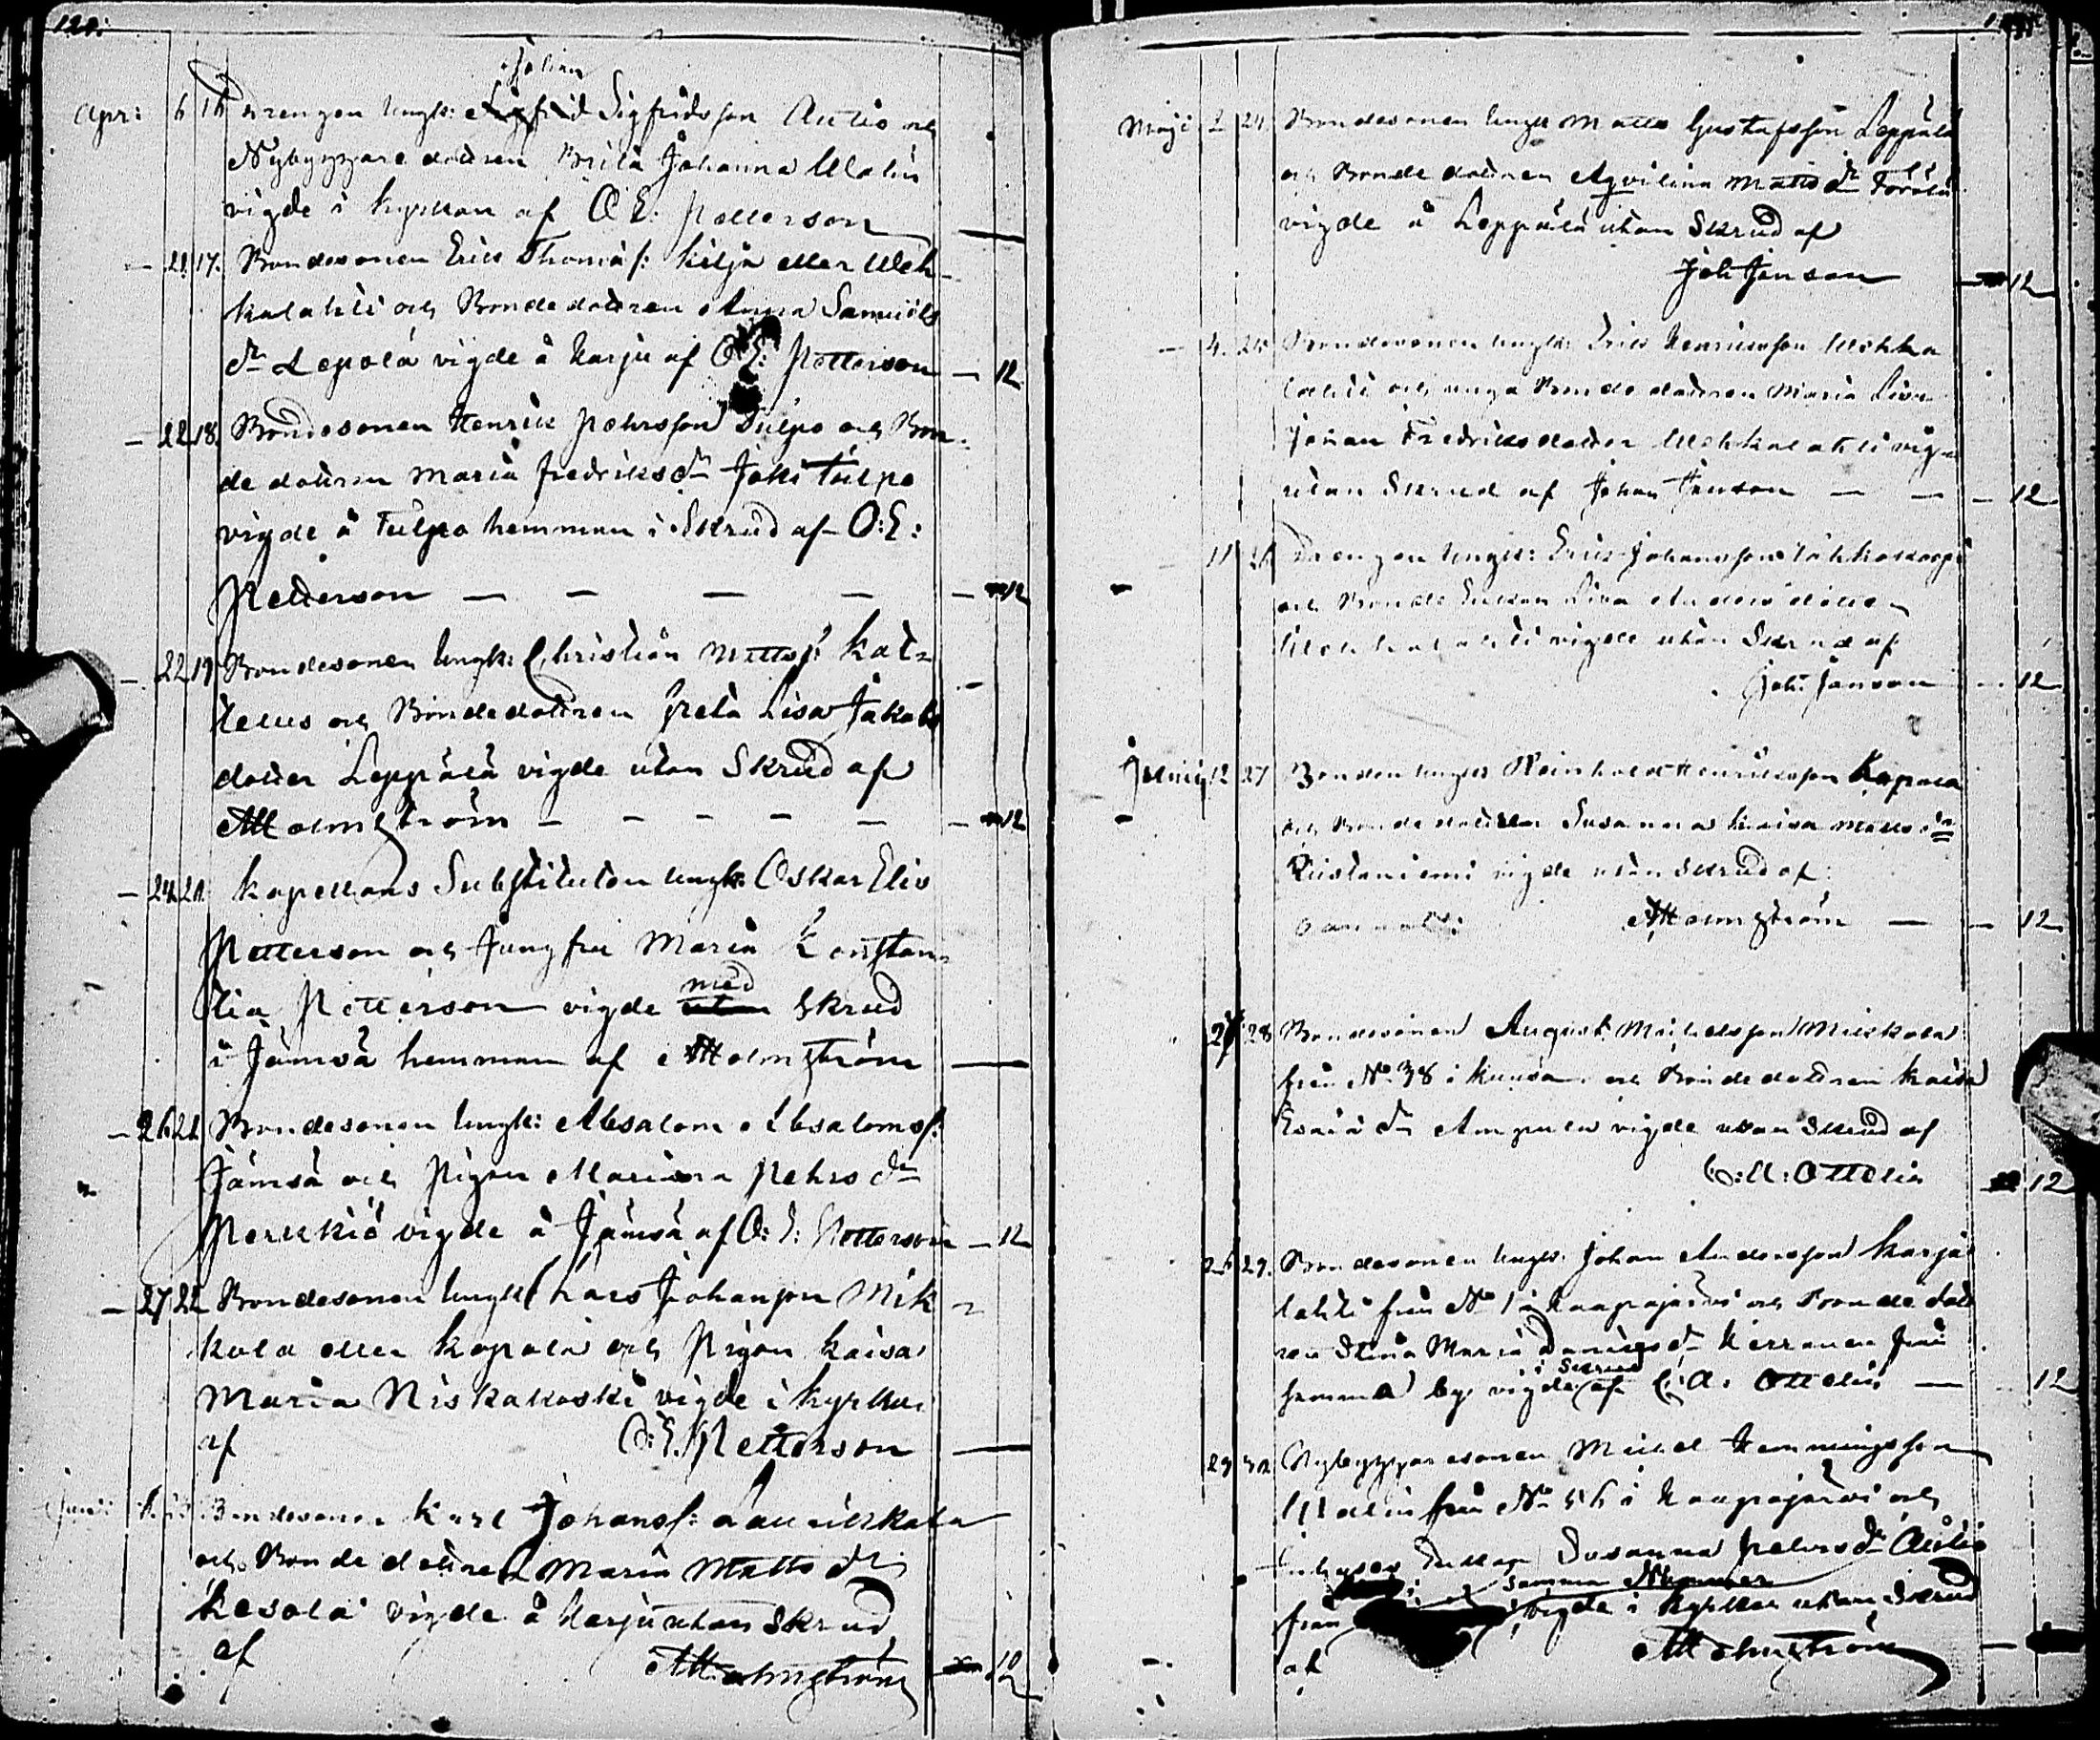 120.
Johan
Apr: 6 16 Drengen Ungk: Sigfrid Sigfridsson Autio och
Nybyggare dottren Brita Johanna Malin
vigde i kyrkan af O E: Petterson
— 21. 17. Bondesonen Eric Thomas: Kilja eller Ueh-
kalahti och Bondedottren Anna Samuels
dr Lepola vigde å Harju af O E: Petterson — 12
— 22 18. Bondesonen Henric Pehrsson Tulpo och Bon-
de dottren Maria Fredriks dr Joki Tulpo
vigde å Tulpo hemman i Skrud af O: E:
Petterson — — — — — 12
— 22 19 Bondesonen Ungk: Christian Matts: Kat-
telus och Bondedottren Greta Lisa Jakobs
dotter Leppälä vigde utan Skrud af
A Holmström — — — — — 12
— 24 20. Kapellans Substituten Ungk: Oskar Elis
Petterson och Jungfru Maria Konstan-
med
tia Petterson vigde utan Skrud
i Jämsä hemman af A Holmström —
— 26 21 Bondesonen Ungk: Absalom Absaloms:
Jämsä och Pigan Mariana Pehrs dr
Perukiö vigde å Jämsä af O: E: Petterson — 12
— 27 22 Bondesonen Ungk Lars Johansson Mik-
kola eller Kopola och Pigan Kaisa
Maria Niskakoski vigde i kyrkan
af O: E. Petterson —
Bondesonen Karl Johans:
och Bonde dottren Maria Matts dr
Kesola vigde å Harju utan Skrud
af A Holmström — 12
Maji 2 24 Bondesonen Ungk Matts Gustafsson Leppälä
och Bonde dottren Aqvilina Matts dr
vigde å Leppälä utan Skrud af
Joh Janson — 12
— 4. 25 Bondesonen Ungk: Eric Henricsson Uehka
lahti och unga Bonde dottren Maria Lisa
Johan Fredriks dotter Uehkalahti vigde
utan Skrud af Johan Janson — — — 12
11 26 Drengen Ungk: Eric Johansson
och Bonde Enkan Lisa Anders dotter
Uehkalahti vigde utan Skrud af
Joh: Janson — 12
Junij 12 27 Bonden Ungk Reinhold Henricsson Kopola
och Bonde dottren Susanna Kaisa Matts dr
Ristaniemi vigde utan Skrud af
A Holmström — — 12
28 Bondesonen August Michelsson Niskala
från No 38 i Kuusa och Bondedottren Kaisa
Esaia dr Ampula vigde utan Skrud af
C: A: Ottelin — 12
26 29. Bondesonen Ungk. Johan Andersson Karja
lahti från No 1 i Kaapajärvi och Bonde dott
ren Stina Maria Daniels dr Kerranen från
i Skrud
samma by vigde af C: A: Ottelin — 12
29 30 Nybyggaresonen Michel Hemmingsson
Malin från No 56 i Kaapajärvi och
Enkan Susanna Pehrs dr Autio
samma Nummer
från vigde i kyrkan utan Skrud
af A Holmström —